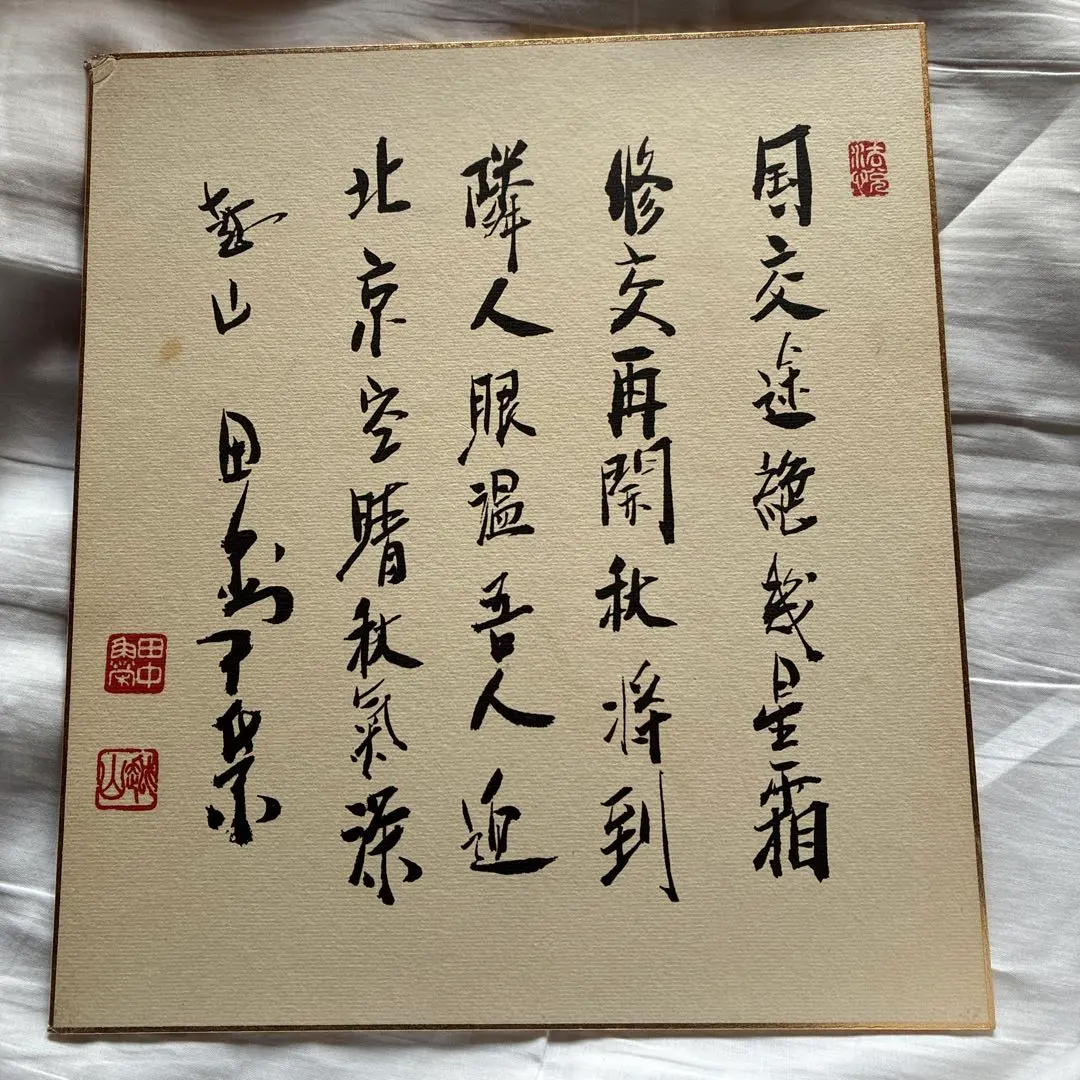 国交途絶幾星霜
修交再開秋将到
隣人眼温吾人迎
北京空晴秋氣深
越山 田中角榮
田中角榮
越山